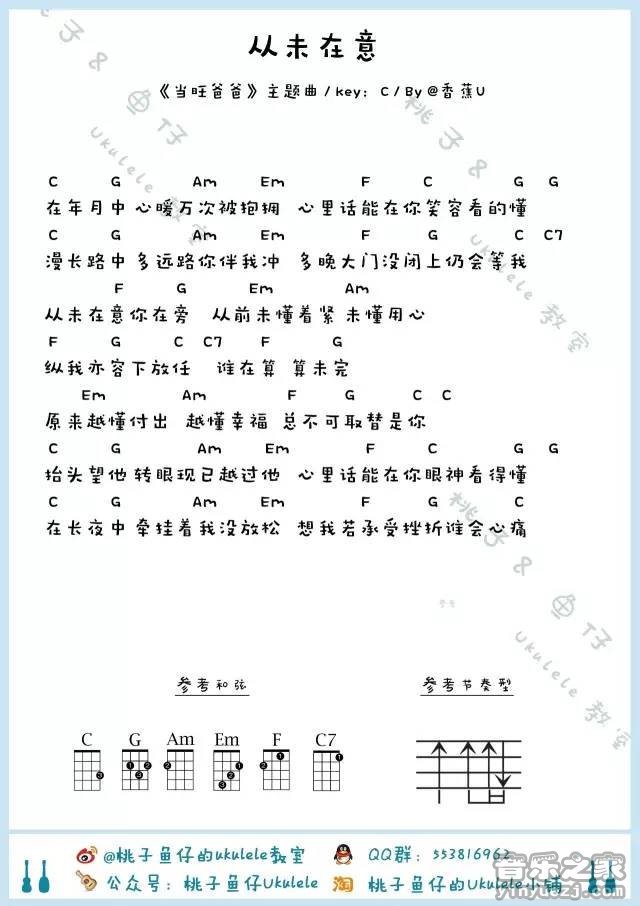 从未在意
《当旺爸爸》主题曲/key：C/By @香蕉U
桃子& 鱼仔
Ukulele 教室
C G Am Em F C G G
在年月中 心暖万次被抱拥 心里话能在你笑容看的懂
C G Am Em F G C C7
漫长路中 多远路你伴我冲 多晚大门没闭上仍会等我
F G Em Am
从未在意你在旁 从前未懂着紧 未懂用心
F G C C7 F G
纵我亦容下放任 谁在算 算未完
Em Am F G C C
原来越懂付出 越懂幸福 总不可取替是你
C G Am Em F C G G
抬头望他 转眼现已越过他 心里话能在你眼神看得懂
C G Am Em F G C
在长夜中 牵挂着我没放松 想我若承受挫折谁会心痛
桃子& 鱼仔
Ukulele 教室
桃子& 鱼仔
Ukulele 教室
参考和弦 参考节奏型
C G Am Em F C7
3 1 2 3 2 1 2 3 1 2 1
@桃子鱼仔的ukulele教室 QQ群：553816962
公众号：桃子鱼仔Ukulele 淘 桃子鱼仔的Ukulele小铺
音乐之家
yinyuezj.com